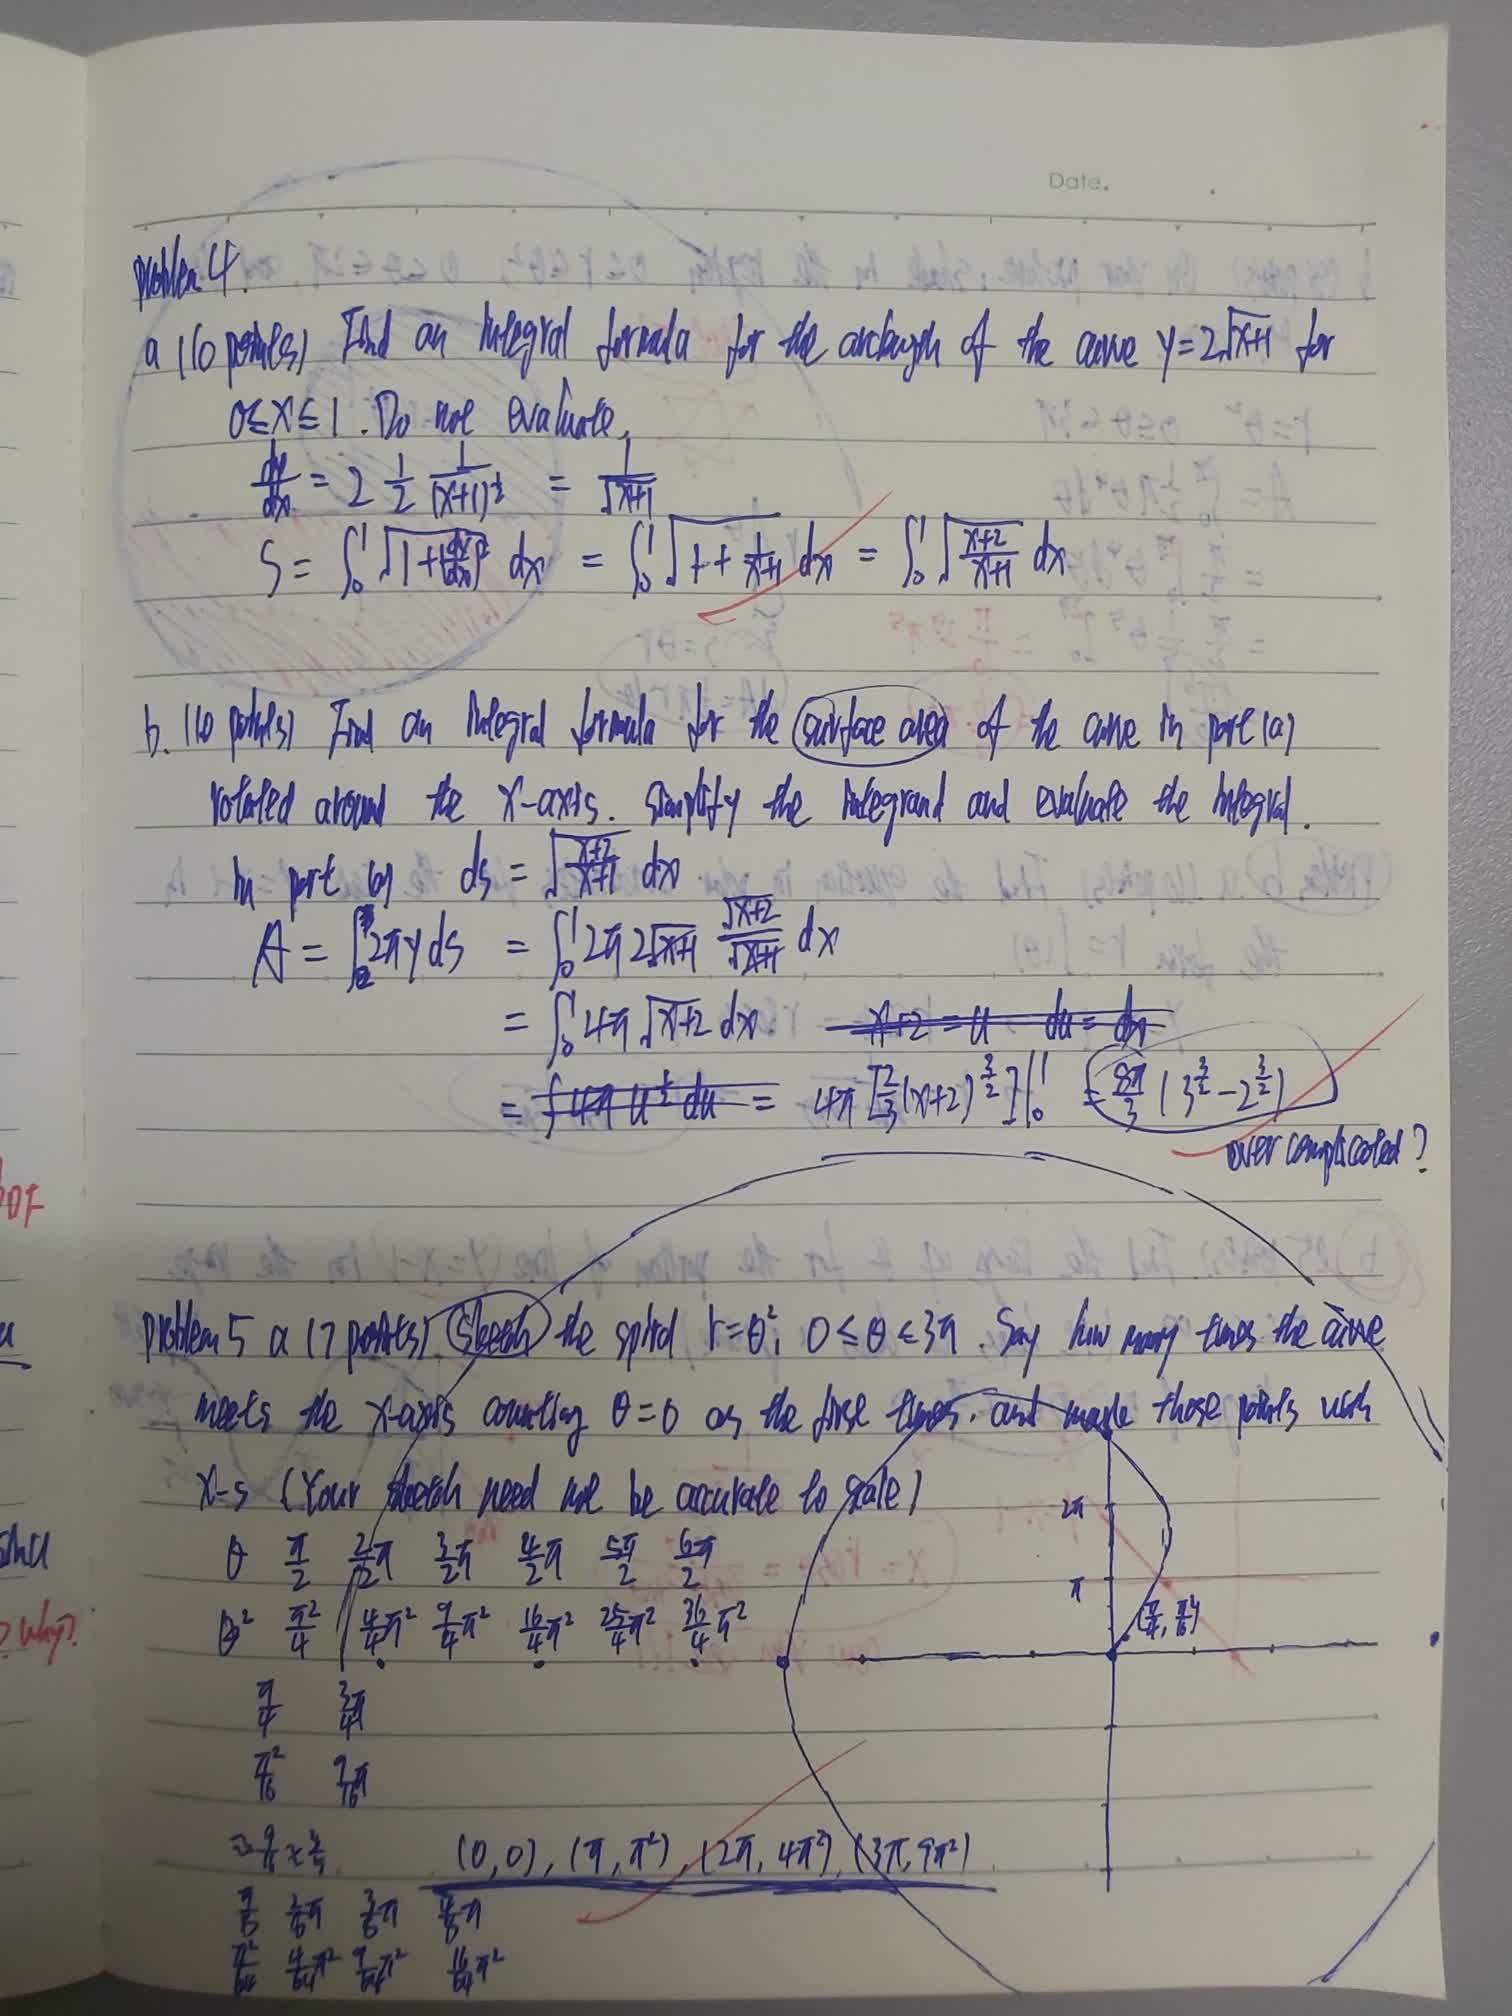 Date.
Problem 4.
a (10 points) Find an integral formula for the arclength of the curve y=2√(x+1) for
0≤x≤1. Do not evaluate.
dy/dx = 2 1/2 1/(x+1)^(1/2) = 1/√(x+1)
S = ∫₀¹ √(1+(dy/dx)²) dx = ∫₀¹ √(1 + 1/(x+1)) dx = ∫₀¹ √((x+2)/(x+1)) dx
b. (10 points) Find an integral formula for the surface area of the curve in part (a)
rotated around the x-axis. Simplify the integrand and evaluate the integral.
In part (a) ds = √((x+2)/(x+1)) dx
A = ∫ 2πy ds = ∫₀¹ 2π 2√(x+1) √(x+2)/√(x+1) dx
= ∫₀¹ 4π √(x+2) dx x+2 = u du = dx
= ∫ 4π u^(1/2) du = 4π [2/3 (x+2)^(3/2)]|₀¹ = 8π/3 (3^(3/2) - 2^(3/2))
over complicated?
Problem 5 a (7 points). Sketch the spiral r=θ², 0≤θ≤3π. Say how many times the curve
meets the x-axis counting θ=0 as the first times. and mark those points with
x-s (Your sketch need not be accurate to scale)
θ π/2 2/2π 3/2π 4/2π 5π/2 6/2π
θ² π²/4 4/4π² 9/4π² 16/4π² 25/4π² 36/4π²
2π
π
(π/4, π²/16)
π/4 3/4π
π²/16 9/16π
(0,0), (π, π²), (2π, 4π²), (3π, 9π²)
π/8 2/8π 3/8π 4/8π
π²/64 4/64π² 9/64π² 16/64π²